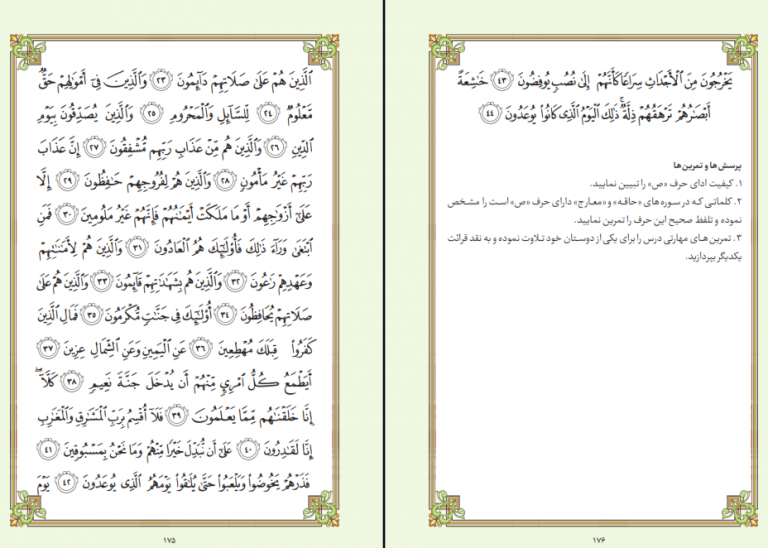 الَّذِينَ هُمْ عَلَىٰ صَلَاتِهِمْ دَآئِمُونَ ﴿٢٣﴾ وَالَّذِينَ فِىٓ أَمْوَالِهِمْ حَقٌّ
مَّعْلُومٌ ﴿٢٤﴾ لِّلسَّآئِلِ وَالْمَحْرُومِ ﴿٢٥﴾ وَالَّذِينَ يُصَدِّقُونَ بِيَوْمِ
الدِّينِ ﴿٢٦﴾ وَالَّذِينَ هُم مِّنْ عَذَابِ رَبِّهِم مُّشْفِقُونَ ﴿٢٧﴾ إِنَّ عَذَابَ
رَبِّهِمْ غَيْرُ مَأْمُونٍ ﴿٢٨﴾ وَالَّذِينَ هُمْ لِفُرُوجِهِمْ حَافِظُونَ ﴿٢٩﴾ إِلَّا
عَلَىٰٓ أَزْوَاجِهِمْ أَوْ مَا مَلَكَتْ أَيْمَانُهُمْ فَإِنَّهُمْ غَيْرُ مَلُومِينَ ﴿٣٠﴾ فَمَنِ
ابْتَغَىٰ وَرَآءَ ذَٰلِكَ فَأُولَٰٓئِكَ هُمُ الْعَادُونَ ﴿٣١﴾ وَالَّذِينَ هُمْ لِأَمَانَاتِهِمْ
وَعَهْدِهِمْ رَاعُونَ ﴿٣٢﴾ وَالَّذِينَ هُم بِشَهَادَاتِهِمْ قَآئِمُونَ ﴿٣٣﴾ وَالَّذِينَ هُمْ عَلَىٰ
صَلَاتِهِمْ يُحَافِظُونَ ﴿٣٤﴾ أُولَٰٓئِكَ فِى جَنَّاتٍ مُّكْرَمُونَ ﴿٣٥﴾ فَمَالِ الَّذِينَ
كَفَرُوا قِبَلَكَ مُهْطِعِينَ ﴿٣٦﴾ عَنِ الْيَمِينِ وَعَنِ الشِّمَالِ عِزِينَ ﴿٣٧﴾
أَيَطْمَعُ كُلُّ امْرِئٍ مِّنْهُمْ أَن يُدْخَلَ جَنَّةَ نَعِيمٍ ﴿٣٨﴾ كَلَّآ ۖ
إِنَّا خَلَقْنَاهُم مِّمَّا يَعْلَمُونَ ﴿٣٩﴾ فَلَآ أُقْسِمُ بِرَبِّ الْمَشَارِقِ وَالْمَغَارِبِ
إِنَّا لَقَادِرُونَ ﴿٤٠﴾ عَلَىٰٓ أَن نُّبَدِّلَ خَيْرًا مِّنْهُمْ وَمَا نَحْنُ بِمَسْبُوقِينَ ﴿٤١﴾
فَذَرْهُمْ يَخُوضُوا وَيَلْعَبُوا حَتَّىٰ يُلَاقُوا يَوْمَهُمُ الَّذِى يُوعَدُونَ ﴿٤٢﴾ يَوْمَ
۱۷۵
يَخْرُجُونَ مِنَ الْأَجْدَاثِ سِرَاعًا كَأَنَّهُمْ إِلَىٰ نُصُبٍ يُوفِضُونَ ﴿٤٣﴾ خَاشِعَةً
أَبْصَارُهُمْ تَرْهَقُهُمْ ذِلَّةٌ ۚ ذَٰلِكَ الْيَوْمُ الَّذِى كَانُوا يُوعَدُونَ ﴿٤٤﴾
پرسش‌ها و تمرین‌ها
۱. کیفیت ادای حرف «ص» را تبیین نمایید.
۲. کلماتی که در سوره‌های «حاقه» و «معارج» دارای حرف «ص» است را مشخص
نموده و تلفظ صحیح این حرف را تمرین نمایید.
۳. تمرین‌های مهارتی درس را برای یکی از دوستان خود تلاوت نموده و به نقد قرائت
یکدیگر بپردازید.
۱۷۶